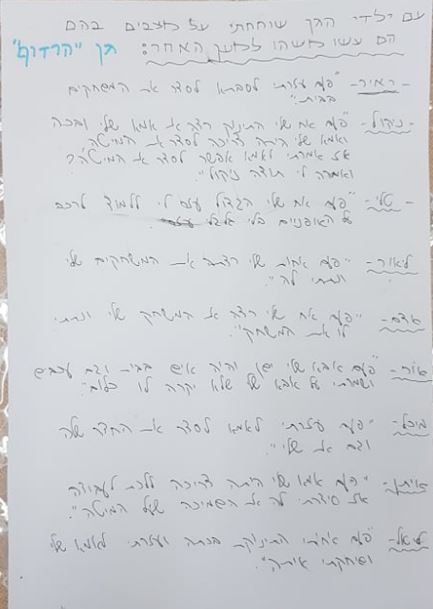 עם ילדי הגן שוחחתי על מצבים בהם
הם עשו משהו למען האחר: גן "הרדוף"
- מאיר - "פעם עזרתי לסבתא לסדר את המשחקים
בבית."
- ניקול - "פעם אח שלי התינוק רצה את אמא שלי ובכה
ואמא שלי היתה צריכה לסדר את המיטה
אז אמרתי לאמא אפשר לסדר את המיטה?
ואמרה לי תודה ניקול".
- טלי - "פעם אח שלי הגדול עזר לי ללמוד לרכב
על האופניים בלי גלגלי
ליאור - "פעם אחות שלי רצתה את המשחקים שלי
ונתתי לה".
- "פעם אח שלי רצה את המשחק שלי ונתתי
לו את המשחק".
- "פעם אבא שלי ישן והיה איש בבית וגם
ושמרתי על אבא שלי שלא יקרה לו כלום".
מיכל - "פעם עזרתי לאמא לסדר את החדר שלה
וגם את שלי".
- "פעם אמא שלי היתה צריכה ללכת לעבודה
אז סידרתי לה את השמיכה שעל המיטה".
ליאל - "פעם אחותי התינוקת בכתה ועזרתי לאמא שלי
ושיחקתי איתה".